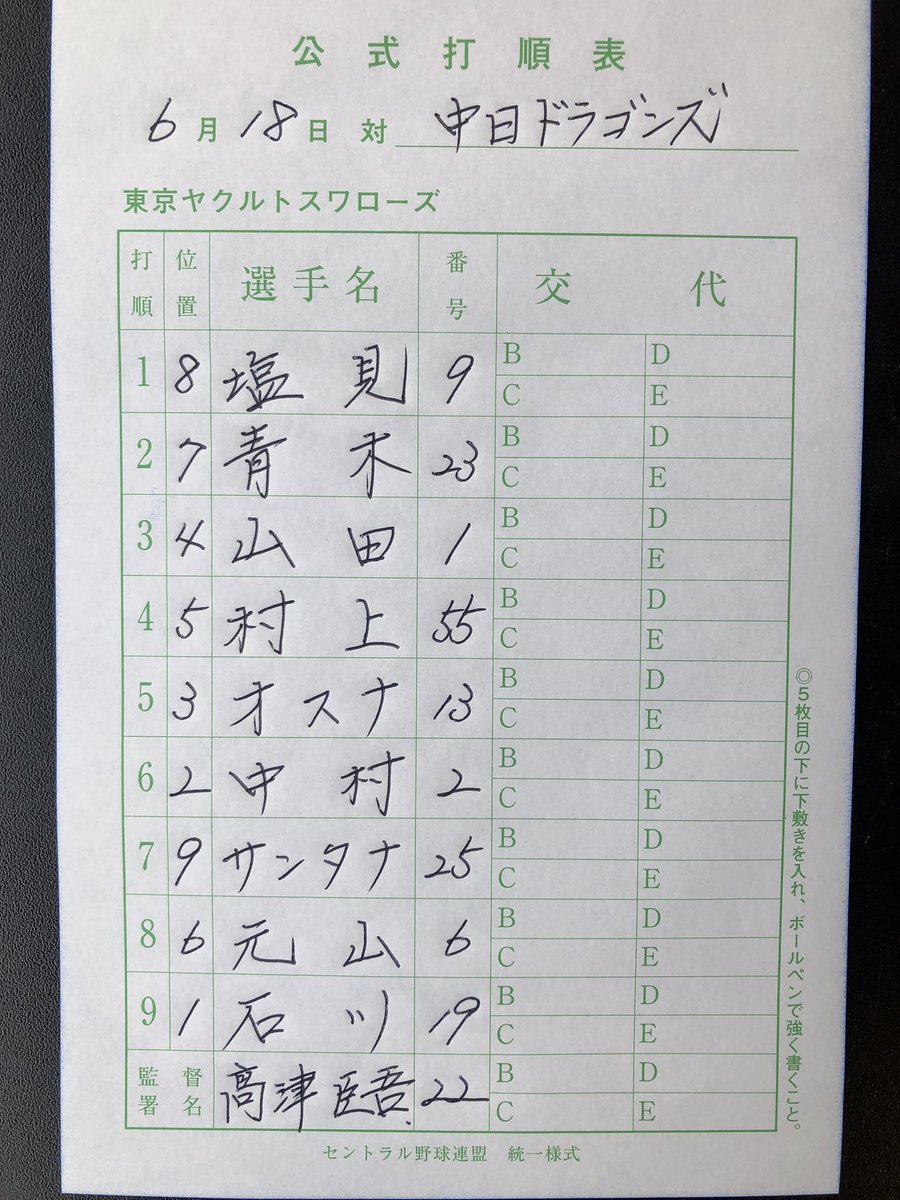 公式打順表
6月18日 対 中日ドラゴンズ
東京ヤクルトスワローズ
打順 位置 選手名 番号 交代
1 8 塩見 9 B D
C E
2 7 青木 23 B D
C E
3 4 山田 1 B D
C E
4 5 村上 55 B D
C E
5 3 オスナ 13 B D
C E
6 2 中村 2 B D
C E
7 9 サンタナ 25 B D
C E
8 6 元山 6 B D
C E
9 1 石川 19 B D
C E
監督署名 高津臣吾 22 B D
C E
◎5枚目の下に下敷きを入れ、ボールペンで強く書くこと。
セントラル野球連盟 統一様式